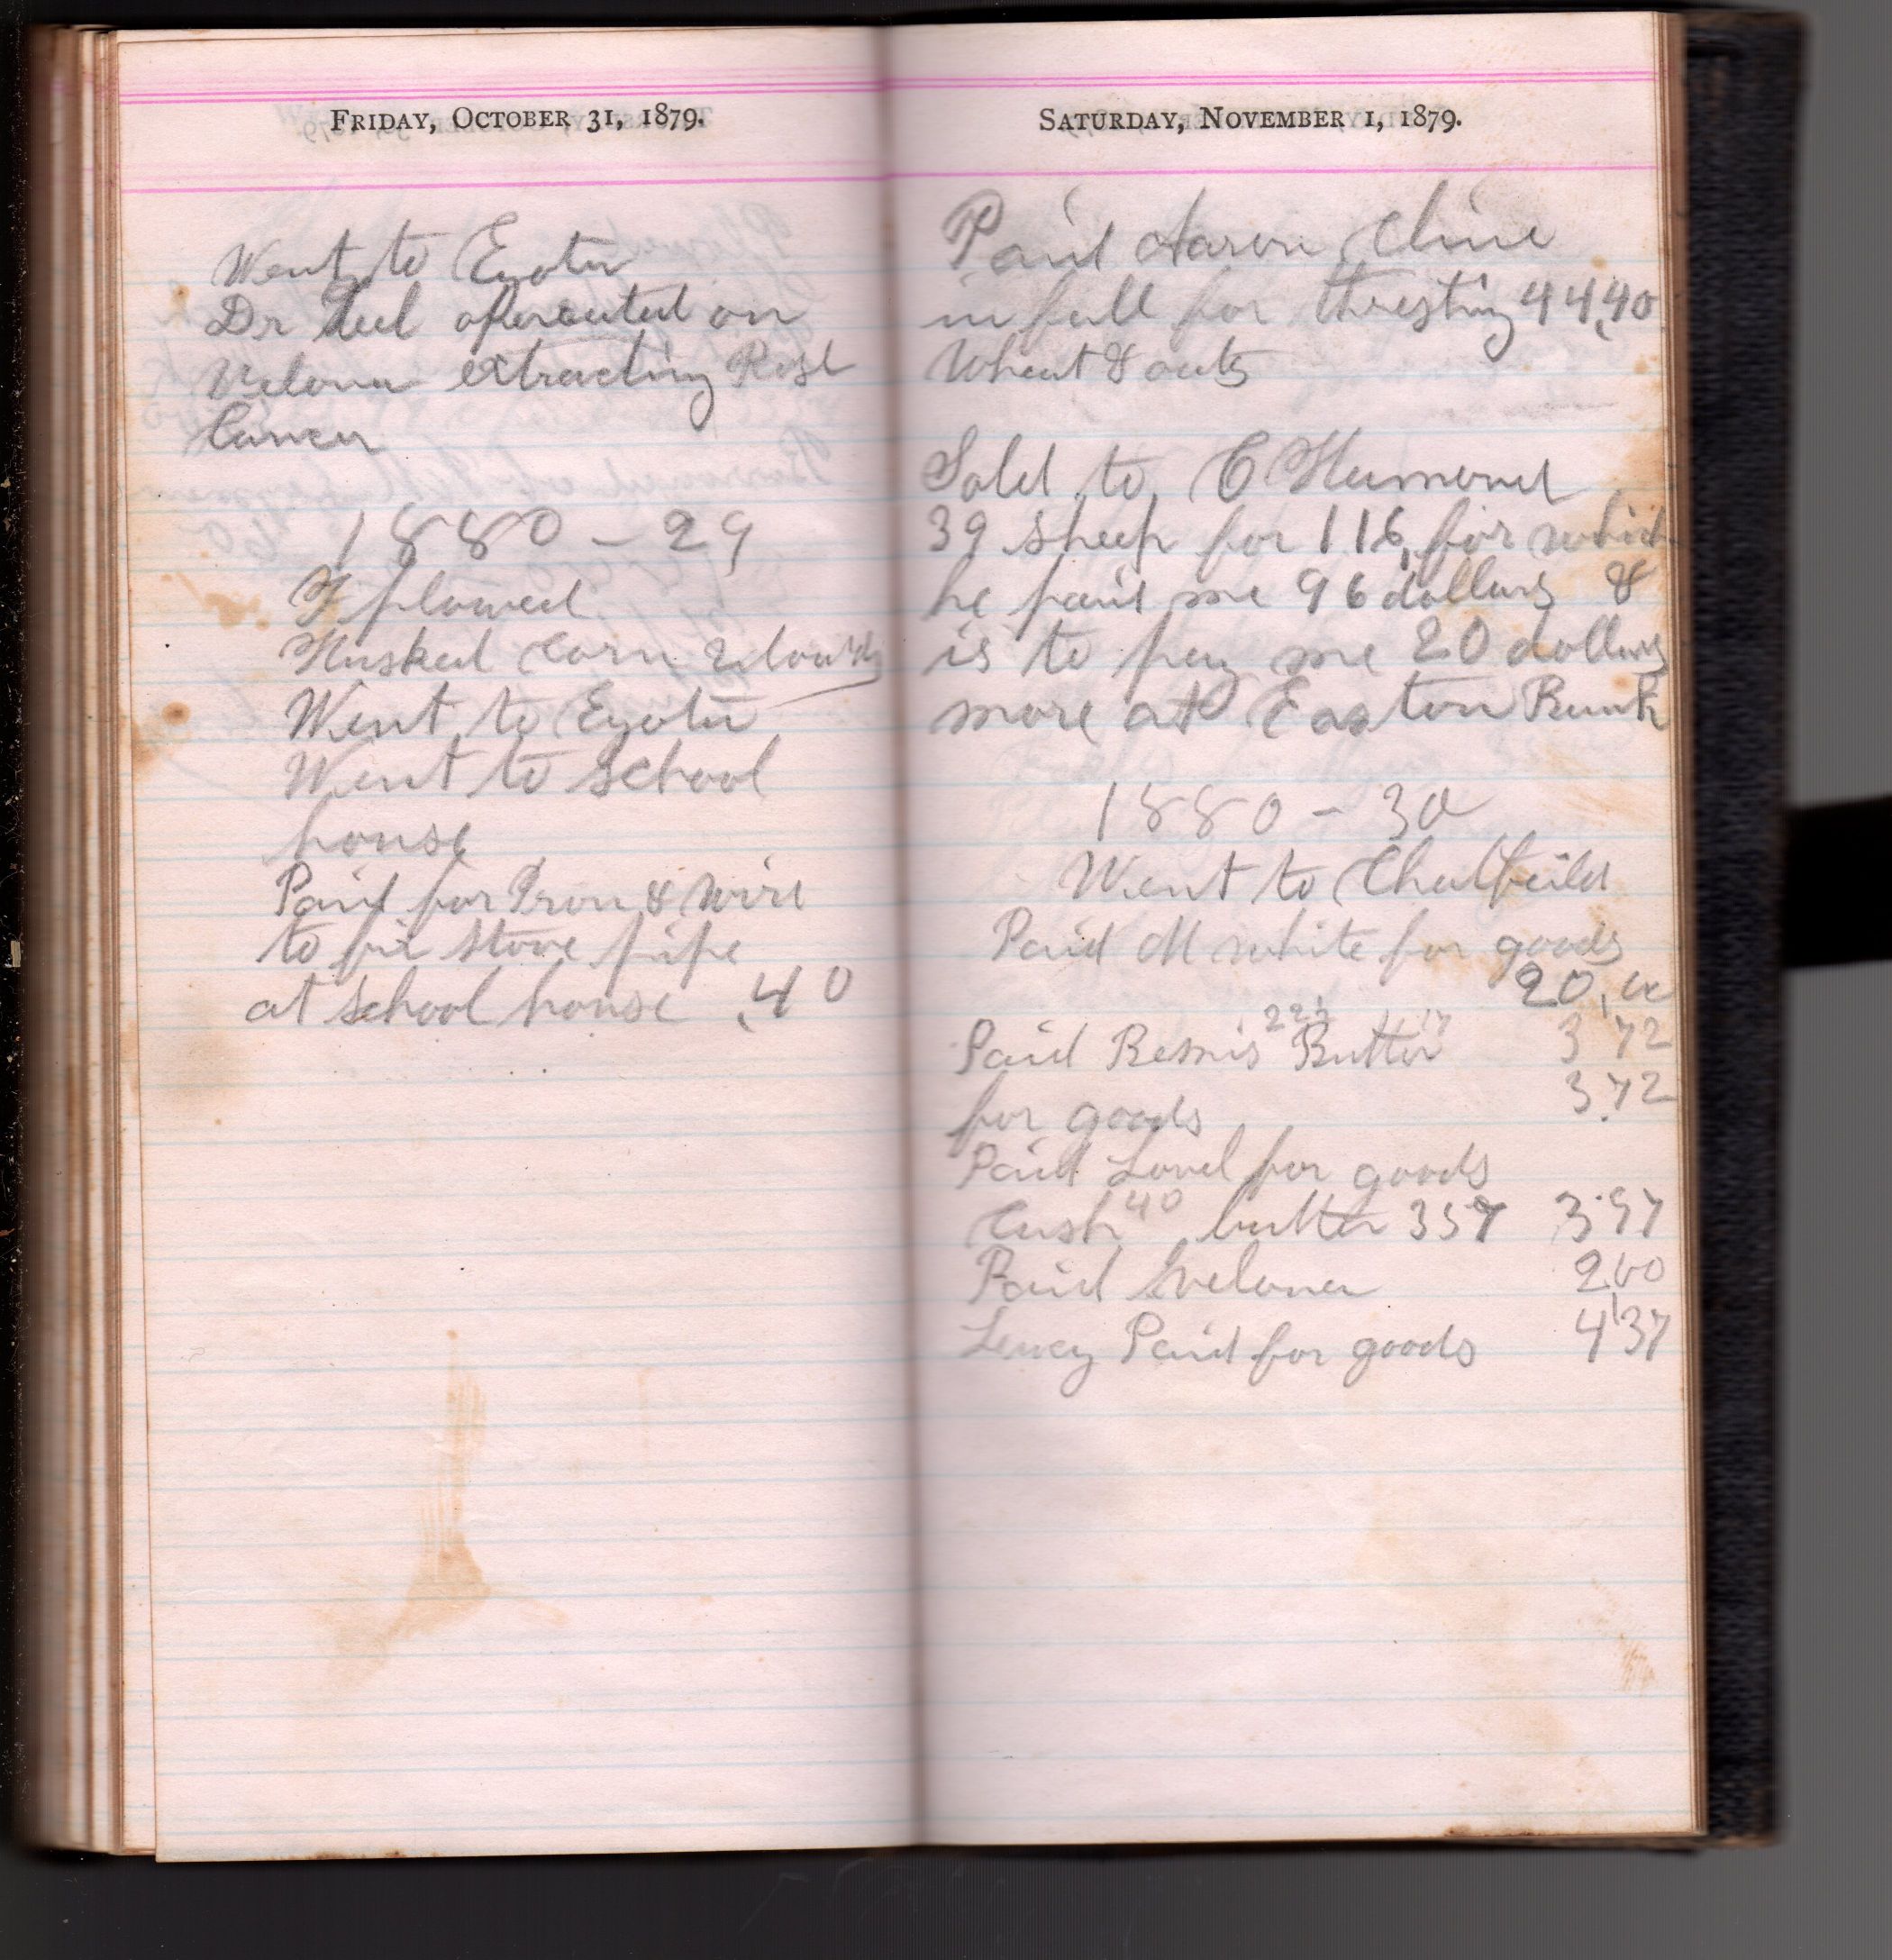 FRIDAY, OCTOBER 31, 1879.
Went to Eyota
Dr operated on
Velona extracting Rose
Cancer
1880 - 29
I plowed
Husked corn 2 loads
Went to Eyota
Went to School
house
Paid for Iron & wire
to fix stove pipe
at school house .40
SATURDAY, NOVEMBER 1, 1879.
Paid Aaron Cline
in full for threshing 44,40
Wheat & oats
Sold to C Hamond
39 sheep for 116, for which
he paid me 96 dollars &
is to pay me 20 dollars
more at Easton Bank
1880 - 30
Went to Chatfeild
Paid M white for goods
20,
Paid Bemis Butter 3 72
for goods 3.72
Paid Lovel for goods
Cash 40 butter 357 3.97
Paid Velona 2,00
Lucy Paid for goods 4,37